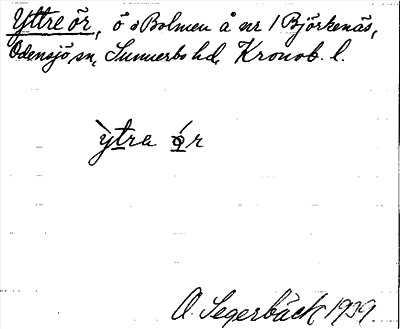 Yttre ör, ö i Bolmen å nr 1 Björkenäs,
Odensjö sn, Sunnerbo hd, Kronob. l.
ỳtra ǫ́r
O. Segerbäck 1939.